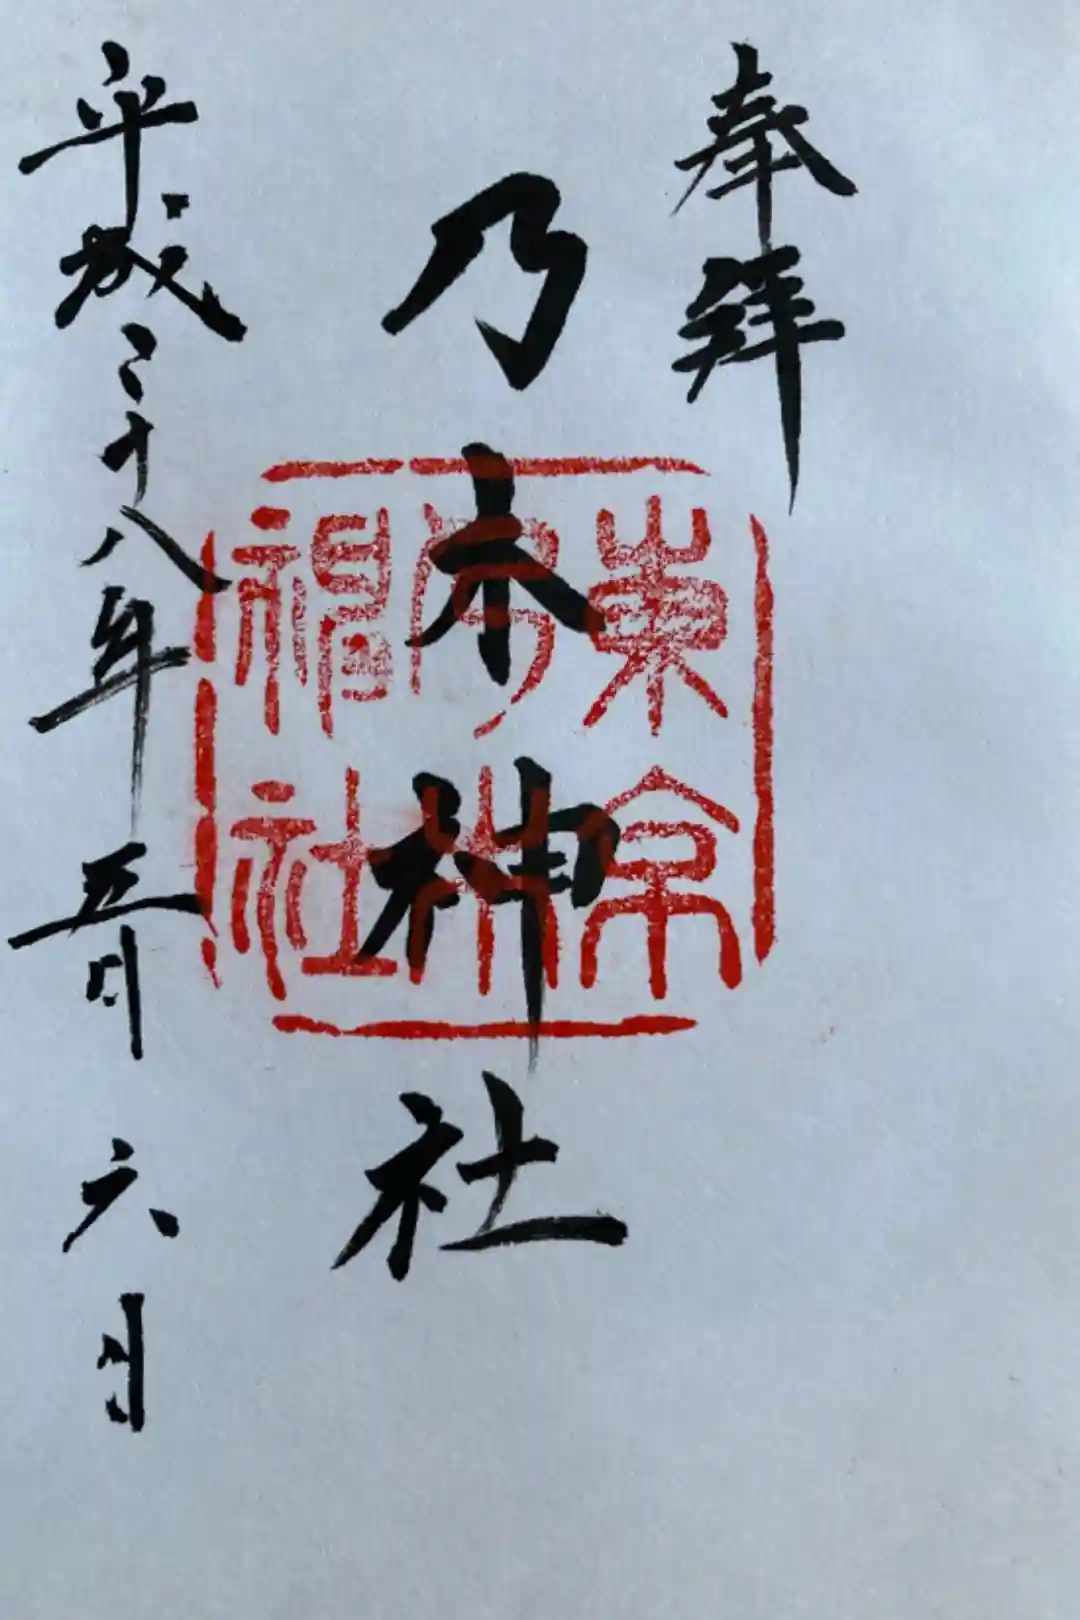 奉拝
乃木神社
平成二十八年五月六日
東京
乃木
神社